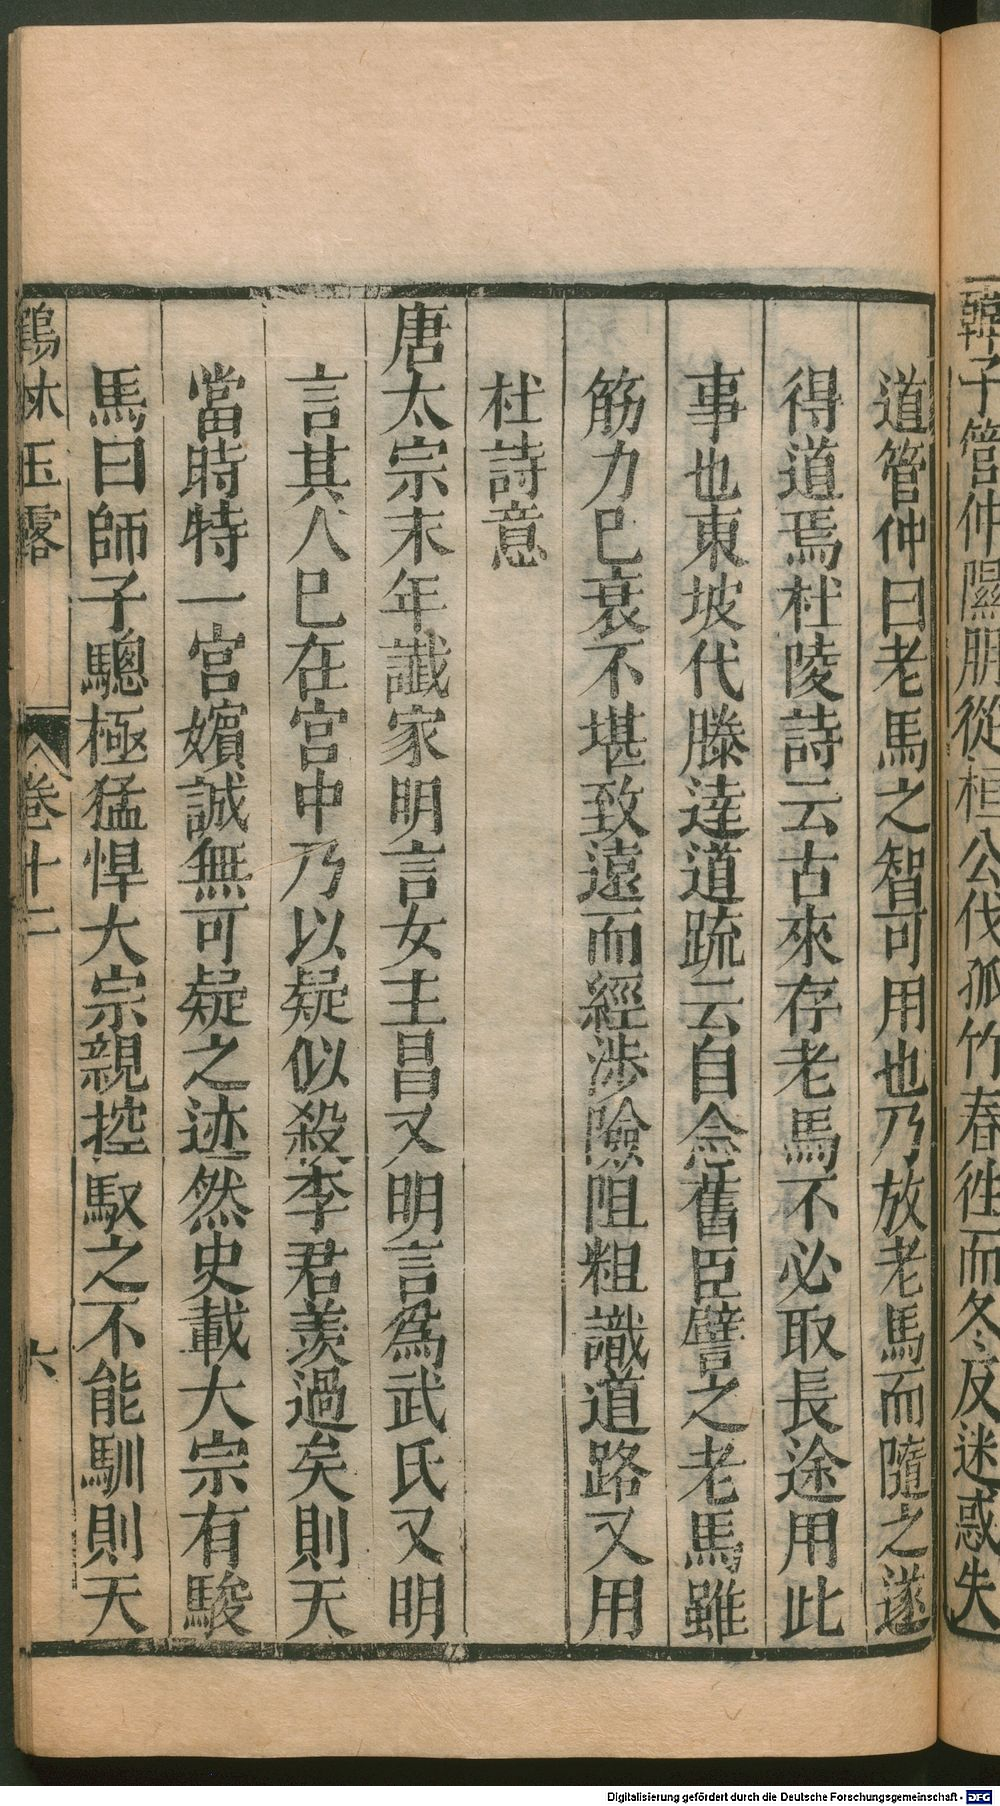 韓子管仲隰朋從桓公伐孤竹春徃而冬反迷惑失
道管仲曰老馬之智可用也乃放老馬而隨之遂
得道焉杜陵詩云古來存老馬不必取長途用此
事也東坡代滕達道疏云自念舊臣譬之老馬雖
筋力已衰不堪致遠而經涉險阻粗識道路又用
杜詩意
唐太宗末年讖家明言女主昌又明言爲武氏又明
言其人巳在宮中乃以疑似殺李君羨過矣則天
當時特一宮嬪誠無可疑之迹然史載大宗有駿
馬曰師子驄極猛悍大宗親控馭之不能馴則天
鶴林玉露 卷十二 六
Digitalisierung gefördert durch die Deutsche Forschungsgemeinschaft - DFG